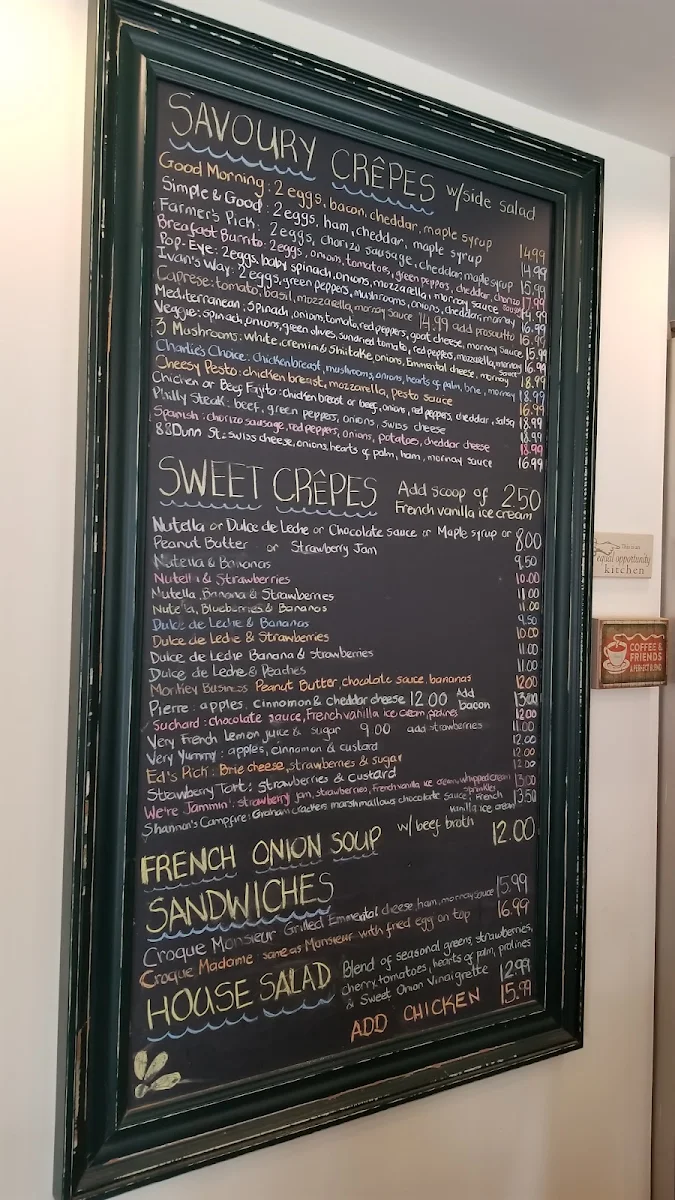 SAVOURY CRÊPES w/side salad
Good Morning: 2 eggs, bacon, cheddar, maple syrup 14.99
Simple & Good: 2 eggs, ham, cheddar, maple syrup 14.99
Farmer's Pick: 2 eggs, chorizo sausage, cheddar, maple syrup 15.99
Breakfast Burrito: 2 eggs, onion, tomatoes, green peppers, cheddar, chorizo sausage 17.99
Pop-Eye: 2 eggs, baby spinach, onions, mozzarella, mornay sauce 14.99
Ivan's Way: 2 eggs, green peppers, mushrooms, onions, cheddar, mornay 16.99
Caprese: tomato, basil, mozzarella, mornay sauce 14.99 add prosciutto 16.99
Mediterranean: Spinach, onions, tomato, red peppers, goat cheese, mornay sauce 15.99
Veggie: spinach, onions, green olives, sundried tomato, red peppers, mozzarella, mornay sauce 16.99
3 Mushrooms: white, cremini & shiitake, onions, Emmental cheese, mornay 18.99
Charlie's Choice: chicken breast, mushrooms, onions, hearts of palm, brie, mornay 18.99
Cheesy Pesto: chicken breast, mozzarella, pesto sauce 16.99
Chicken or Beef Fajita: chicken breast or beef, onions, red peppers, cheddar, salsa 18.99
Philly Steak: beef, green peppers, onions, swiss cheese 18.99
Spanish: chorizo sausage, red peppers, onions, potatoes, cheddar cheese 18.99
88 Dunn St: swiss cheese, onions, hearts of palm, ham, mornay sauce 16.99
SWEET CRÊPES Add scoop of French vanilla ice cream 2.50
Nutella or Dulce de Leche or Chocolate sauce or Maple syrup or 8.00
Peanut Butter or Strawberry Jam
Nutella & Bananas 9.50
Nutella & Strawberries 10.00
Nutella, Banana & Strawberries 11.00
Nutella, Blueberries & Bananas 11.00
Dulce de Leche & Bananas 9.50
Dulce de Leche & Strawberries 10.00
Dulce de Leche Banana & strawberries 11.00
Dulce de Leche & Peaches 11.00
Monkey Business Peanut Butter, chocolate sauce, bananas 12.00
Pierre: apples, cinnamon & cheddar cheese 12.00 Add bacon 13.00
Suchard: chocolate sauce, French vanilla ice cream, pralines 12.00
Very French lemon juice & sugar 9.00 add strawberries 11.00
Very Yummy: apples, cinnamon & custard 12.00
Ed's Pick: Brie cheese, strawberries & sugar 12.00
Strawberry Tart: Strawberries & Custard 12.00
We're Jammin': strawberry jam, strawberries, French vanilla ice cream, whipped cream sprinkles 13.00
Shannon's Campfire: Graham crackers marshmallows chocolate sauce, French vanilla ice cream 13.50
FRENCH ONION SOUP w/ beef broth 12.00
SANDWICHES
Croque Monsieur Grilled Emmental cheese, ham, mornay sauce 15.99
Croque Madame: same as Monsieur with fried egg on top 16.99
HOUSE SALAD Blend of seasonal greens, strawberries,
cherry tomatoes, hearts of palm, pralines
& Sweet Onion Vinaigrette 12.99
ADD CHICKEN 15.99
equal opportunity
kitchen
COFFEE &
FRIENDS
A PERFECT BLEND